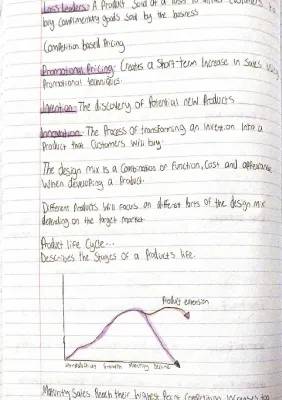 Loss Leaders: A Product Sold at a loss to
buy complimentary goods sold by the business
Competition based Pricing
Promotional Pricing: Creates a Short-term Increase in Sales using
Promotional techniques.
Invention- The discovery of Potential new Products
Innovation- The Process of transforming an Invention Into a
Product that Customers will buy.
The design mix is a Combination of Function, Cost and appearance
When developing a Product.
Different Products Will Focus on different Parts of the design mix
depending on the target market
Product life Cycle...
Describes the Stages of a Products life.
Product extension
Introduction Growth Maturity Decline
Maturity Sales Reach their highest Point Competition Increases